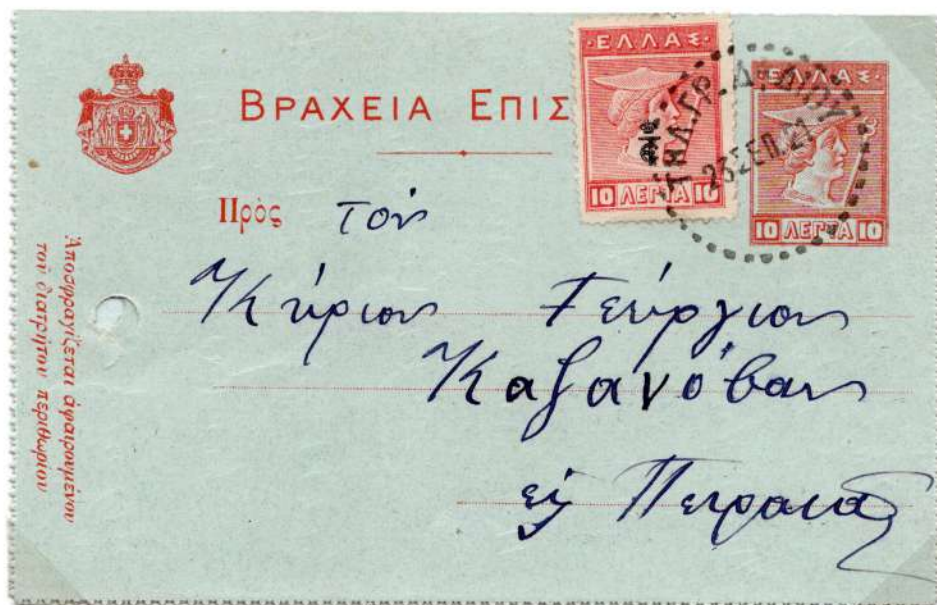 ΒΡΑΧΕΙΑ ΕΠΙΣ
·ΕΛΛΑΣ·
10 ΛΕΠΤΑ 10
ΕΛΛΑΣ·
10 ΛΕΠΤΑ 10
23 ΣΕΠ. 21
Πρὸς τὸν
Κύριον Γεώργιον
Καζανόβαν
εἰς Πειραιᾶ
Ἀποσφραγίζεται ἀφαιρουμένου
τοῦ διατρήτου περιθωρίου